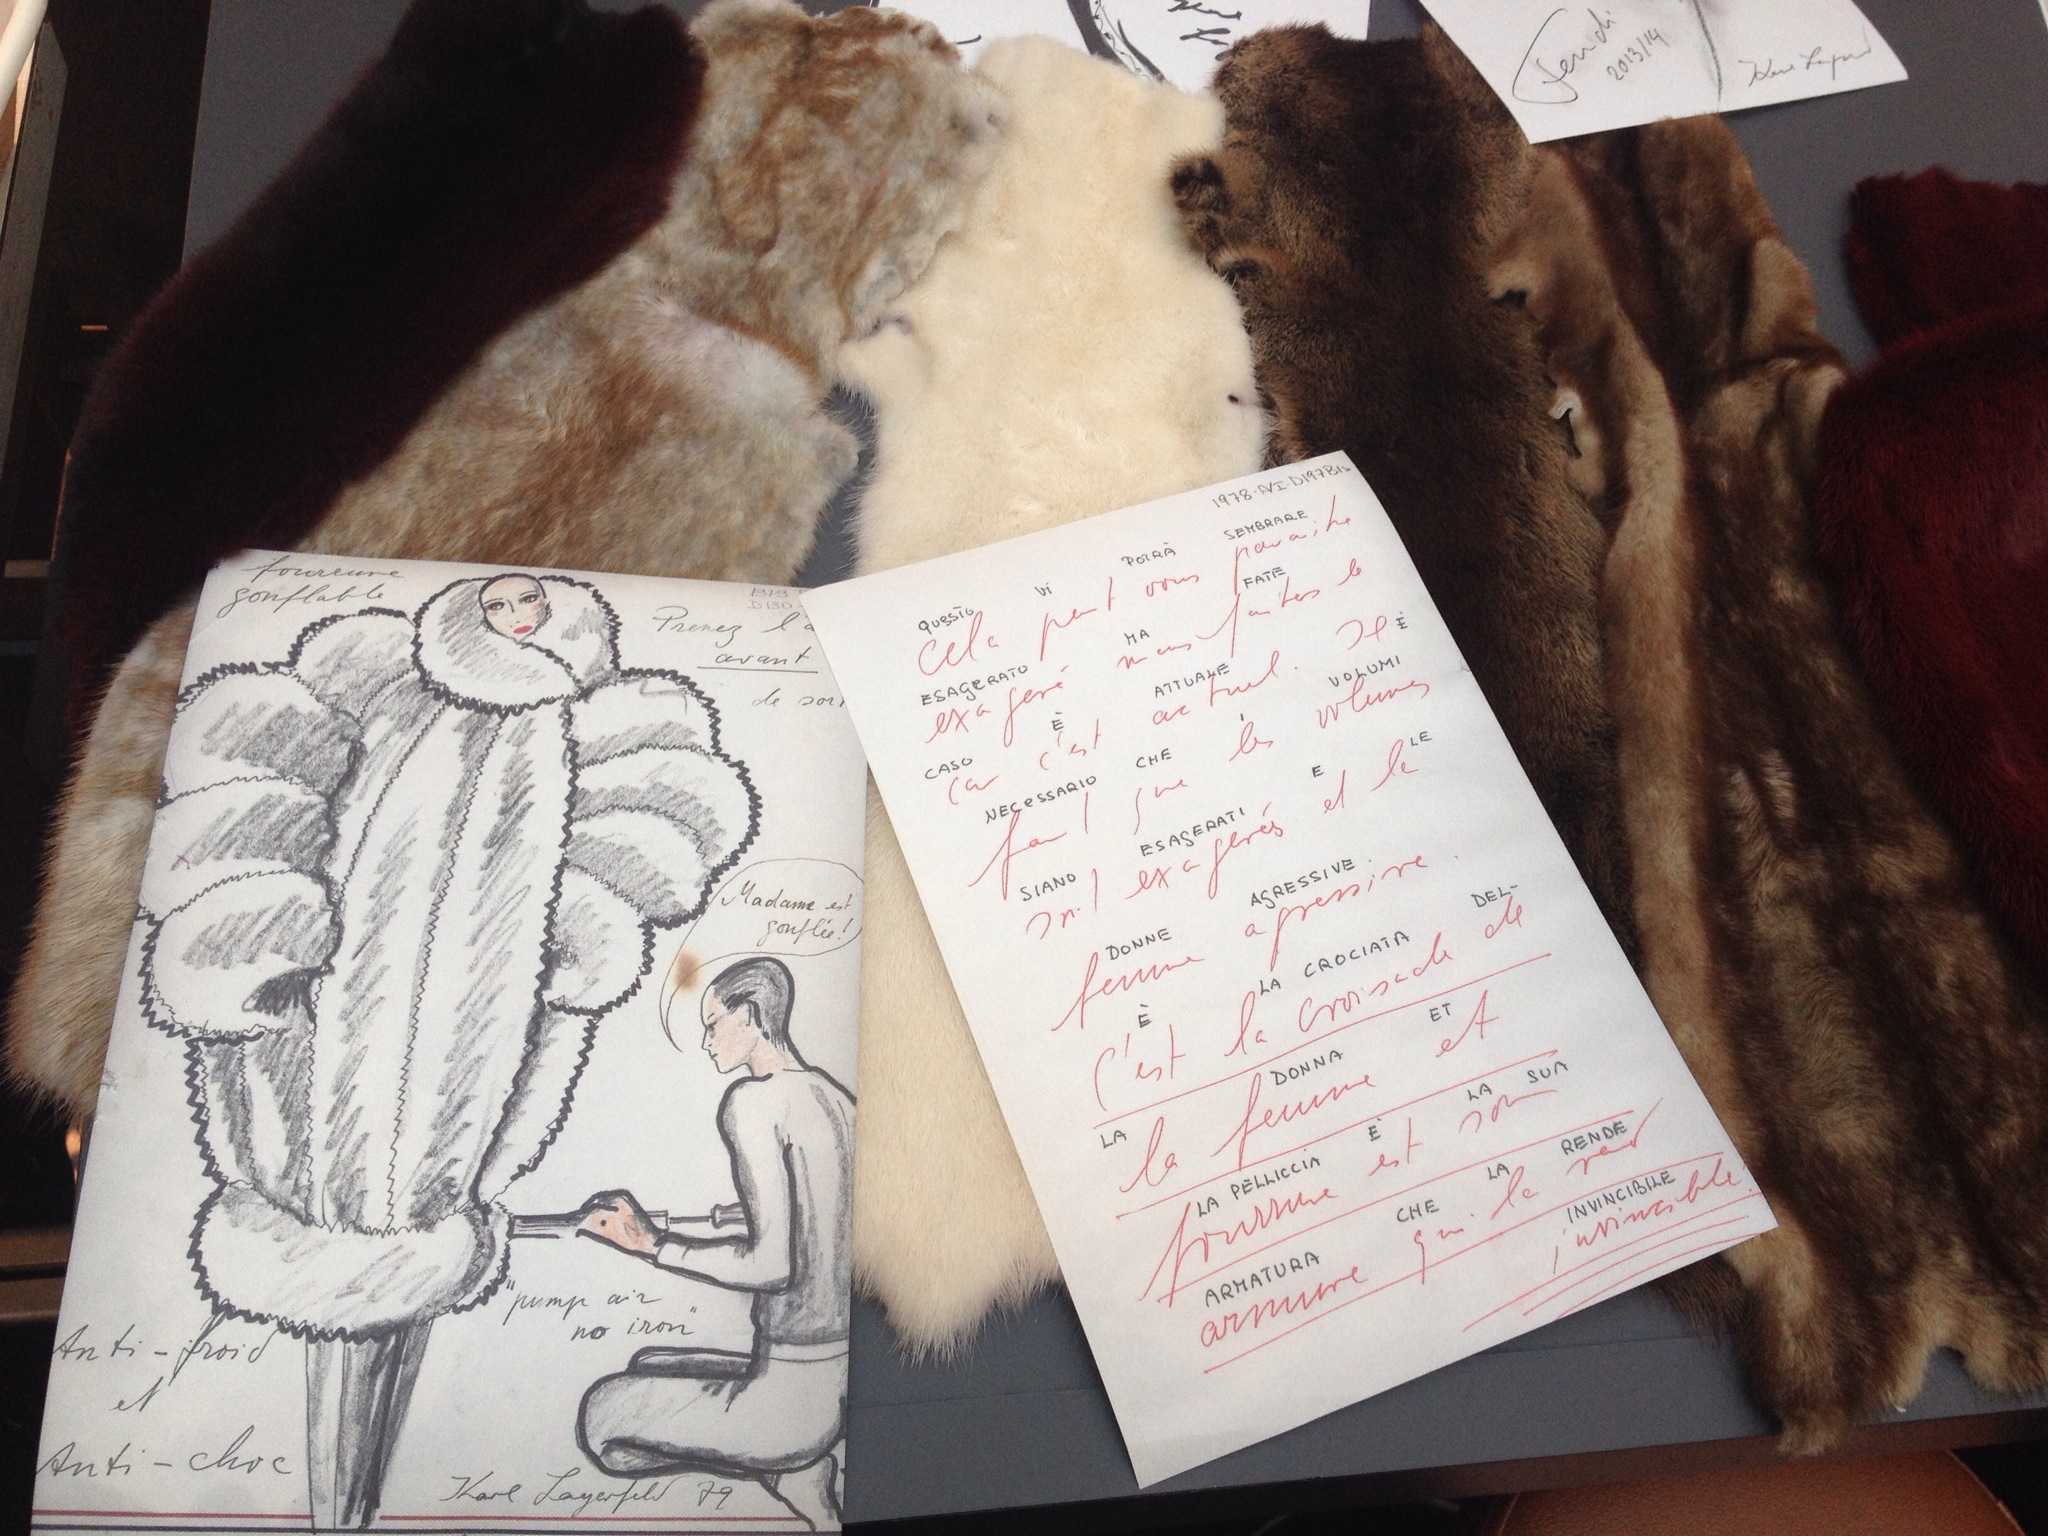 Fendi
2013/14
fourrure
gonflable
1979
D130-
Prenez l'a
avant
de sor
Madame est
gonflée!
"pump air
no iron"
Anti-froid
et
Anti-choc
Karl Lagerfeld 79
1978-AVI-D197Bis
QUESTO VI POTRÀ SEMBRARE
Cela peut vous paraître
ESAGERATO MA FATE
exagéré mais faites le
CASO È ATTUALE È
car c'est actuel. Il
NECESSARIO CHE I VOLUMI
faut que les volumes
SIANO ESAGERATI E LE
soit exagérés et la
DONNE AGRESSIVE.
femme agressive.
È LA CROCIATA DEL-
C'est la croisade de
LA DONNA ET
la femme et
LA PELLICCIA È LA SUA
fourrure est son
ARMATURA CHE LA RENDE
armure qui la rend
INVINCIBILE
invincible!